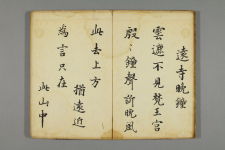 遠寺晩鐘
雲遮不見梵王宮
殷〻鐘聲訴晩風
此去上方
猶遠近
為言只在
此山中